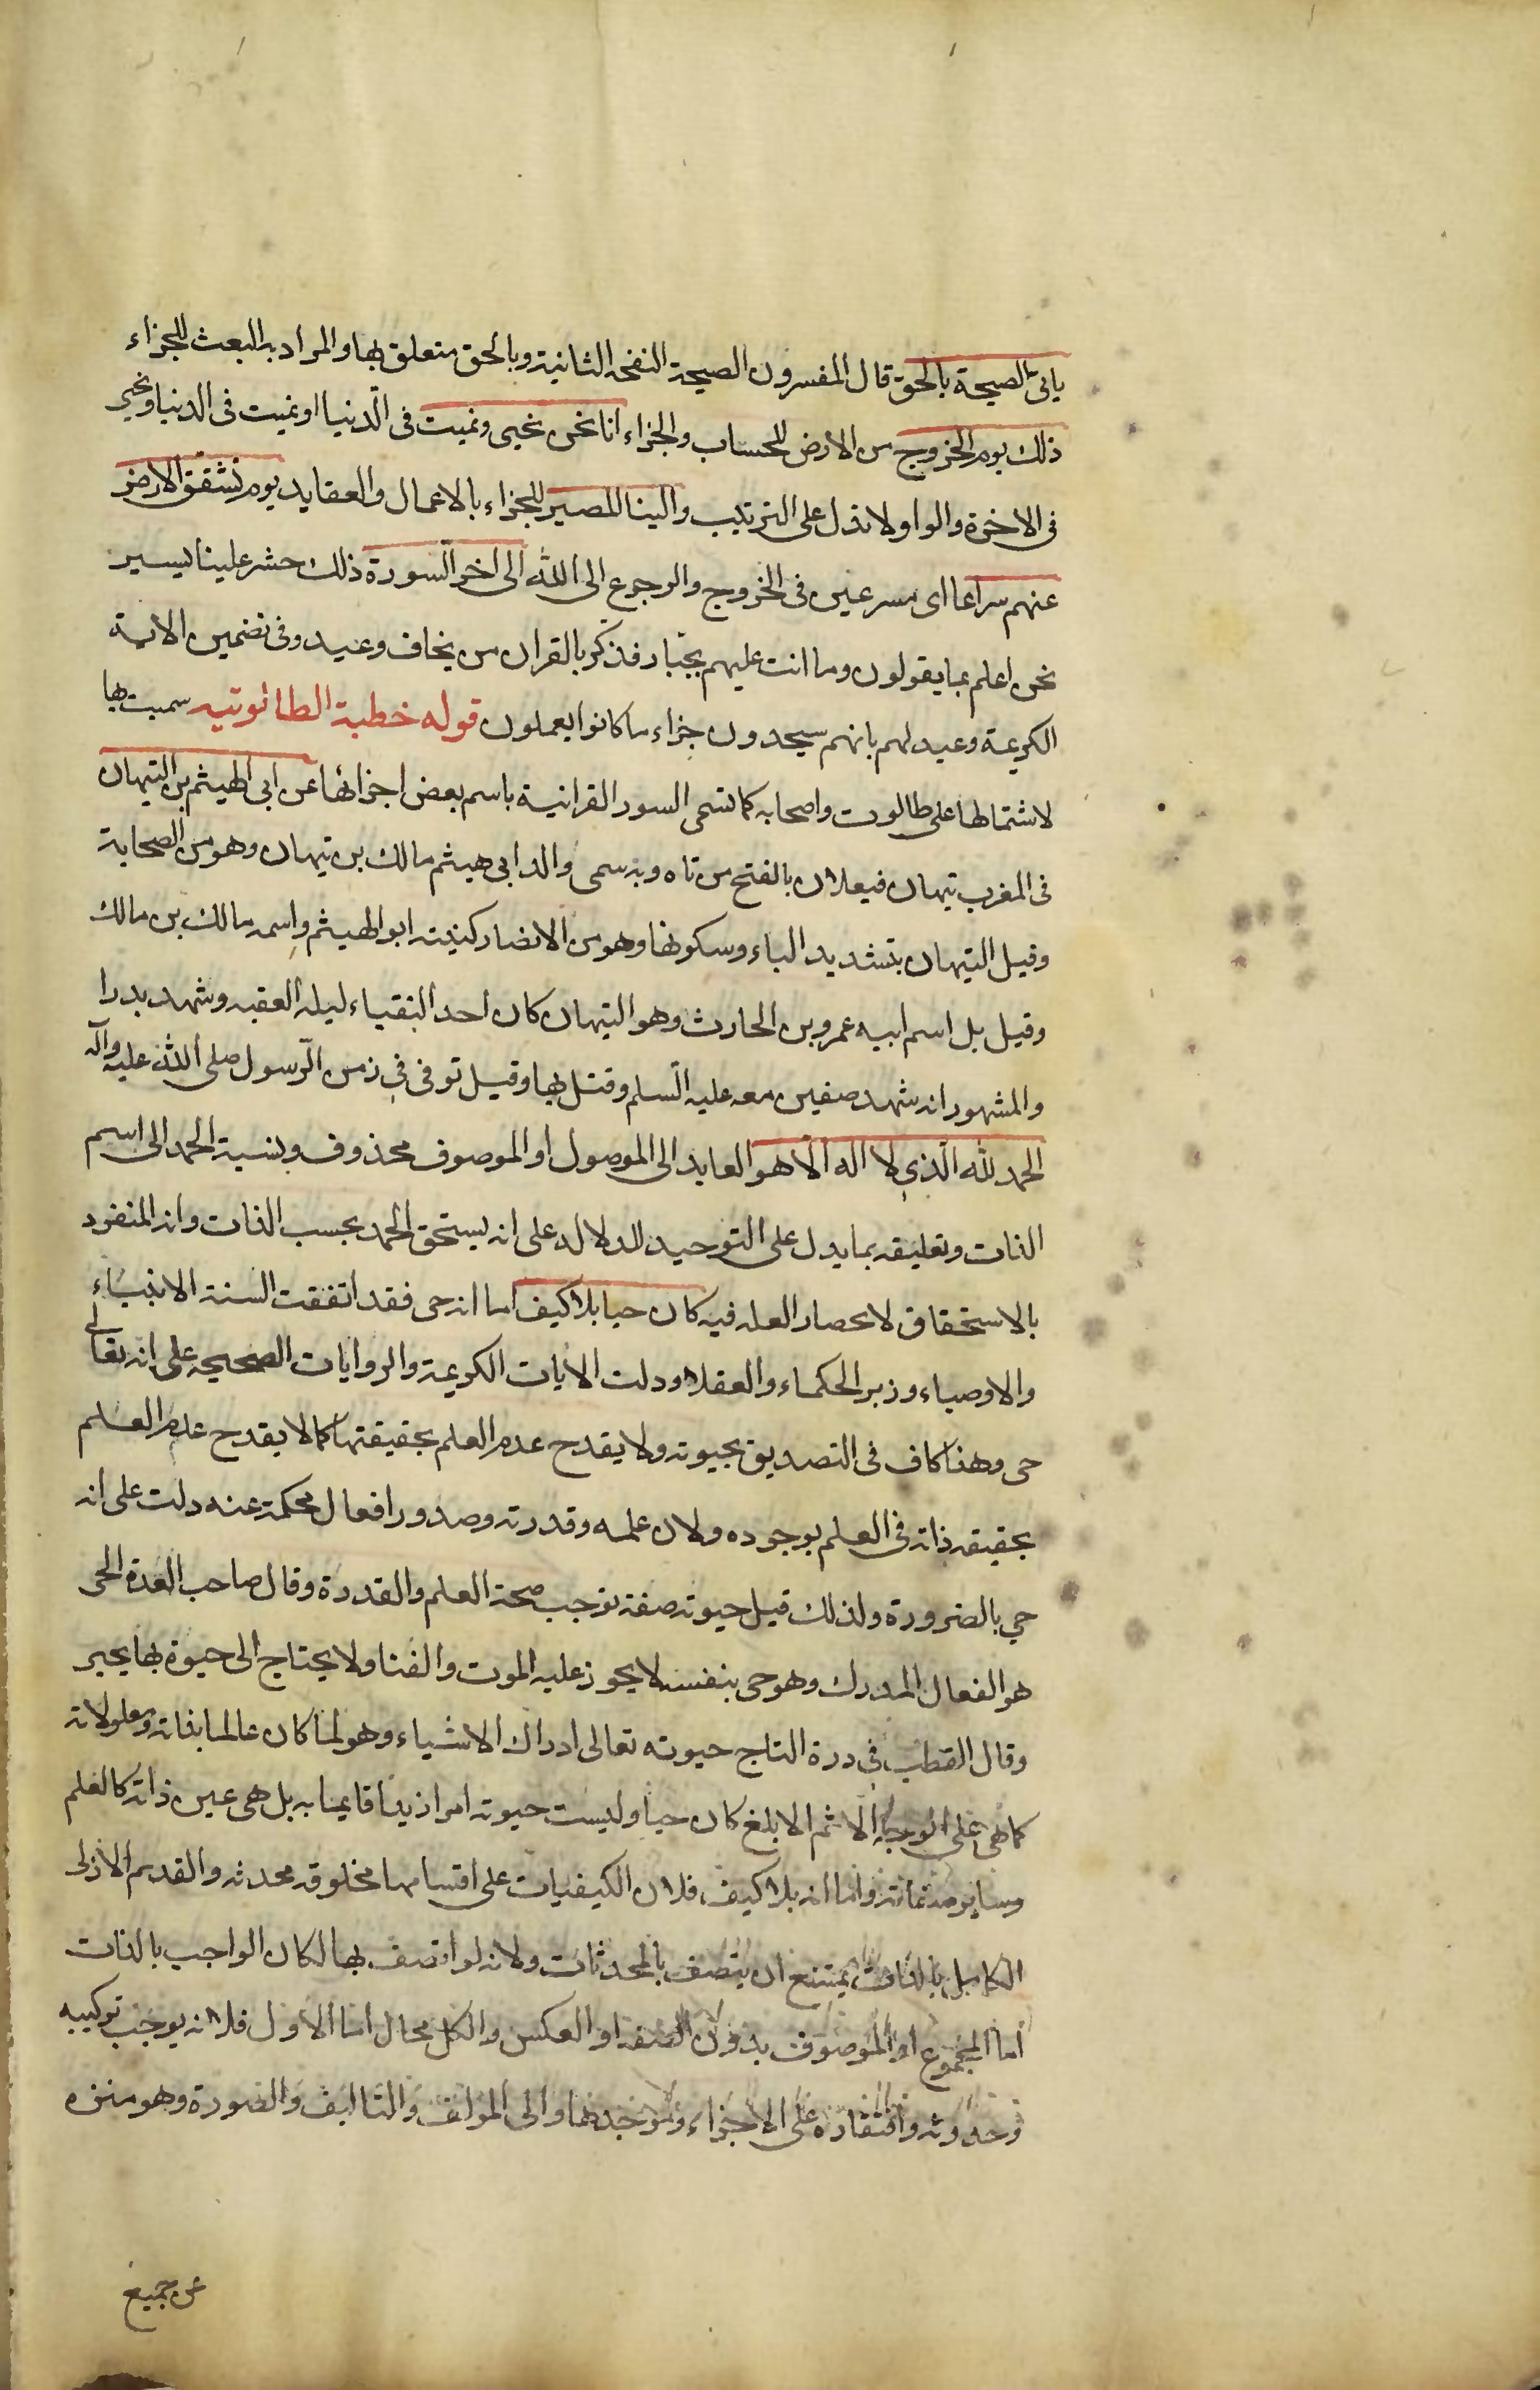 ياتى الصيحة بالحق قال المفسرون الصيحة النفخة الثانية وبالحق متعلق بها والمراد به البعث للجزاء
ذلك يوم الخروج من الارض للحساب والجزاء انا نحن نحيى ونميت فى الدنيا او نميت فى الدنيا ونحيى
فى الاخرة والواو لا تدل على الترتيب والينا المصير للجزاء بالاعمال والعقايد يوم تشقق الارض
عنهم سراعا اى مسرعين فى الخروج والرجوع الى الله الى اخر السورة ذلك حشر علينا يسير
نحن اعلم بما يقولون وما انت عليهم بجبار فذكر بالقران من يخاف وعيد وفى تضمين الاية
الكريمة وعيد لهم بانهم سيجدون جزاء ما كانوا يعملون قوله خطبة الطالوتيه سميت بها
لاشتمالها على طالوت واصحابه كما تسمى السور القرانية باسم بعض اجزائها عن ابى الهيثم بن التيهان
فى المغرب تيهان فيعلان بالفتح من تاه وبه سمى والد ابى هيثم مالك بن تيهان وهو من الصحابة
وقيل التيهان بتشديد الياء وسكونها وهو من الانصار كنيته ابو الهيثم واسمه مالك بن مالك
وقيل بل اسم ابيه عمرو بن الحارث وهو التيهان كان احد النقباء ليلة العقبه وشهد بدرا
والمشهور انه شهد صفين معه عليه السلم وقتل بها وقيل توفى فى زمن الرسول صلى الله عليه وآله
الحمد لله الذى لا اله الا هو العايد الى الموصول او الموصوف محذوف ونسبة الحمد الى اسم
الذات وتعليقه بما يدل على التوحيد للدلاله على انه يستحق الحمد بحسب الذات وانه المنفرد
بالاستحقاق لانحصار العله فيه كان حيا بلا كيف اما انه حى فقد اتفقت السنة الانبياء
والاوصياء وزبر الحكماء والعقلاء ودلت الايات الكريمة والروايات الصحيحه على انه تعالى
حى وهذا كاف فى التصديق بحيوته ولا يقدح عدم العلم بحقيقتها كما لا يقدح عدم العلم
بحقيقه ذاته فى العلم بوجوده ولان علمه وقدرته وصدور افعال محكمة عنه دلت على انه
حي بالضرورة ولذلك قيل حيوته صفة توجب صحة العلم والقدرة وقال صاحب العدة الحى
هو الفعال المدرك وهو حى بنفسه لا يجوز عليه الموت والفنا ولا يحتاج الى حيوة بها يحيى
وقال القطب فى درة التاج حيوته تعالى ادراك الاشياء وهو لما كان عالما بذاته ومعلولاته
كما هى على الوجه الاتم الابلغ كان حيا وليست حيوته امرا زيدا قايما به بل هى عين ذاته كالعلم
وساير صفاته واما انه بلا كيف فلان الكيفيات على اقسامها مخلوقه محدثه والقديم الازلى
الكامل بالذات يمتنع ان يتصف بالمحدثات ولانه لو اتصف بها لكان الواجب بالذات
اما المجموع او الموصوف بدون الصفه او العكس والكل محال اما الاول فلانه يوجب تركيبه
وحدوثه وافتقاره على الاجزاء وموجدهما والى المؤلف والتاليف والصورة وهو منزه
عن جميع